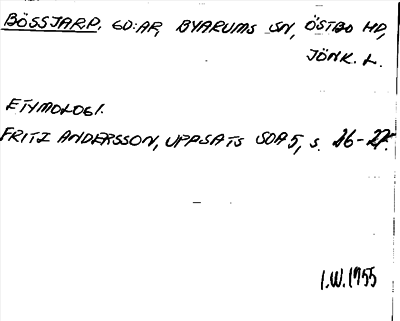 BÖSSJARP, GD:AR, BYARUMS SN, ÖSTBO HD,
JÖNK. L.
ETYMOLOGI.
FRITZ ANDERSSON, UPPSATS SOA 5, S. 26-27.
I.W. 1955